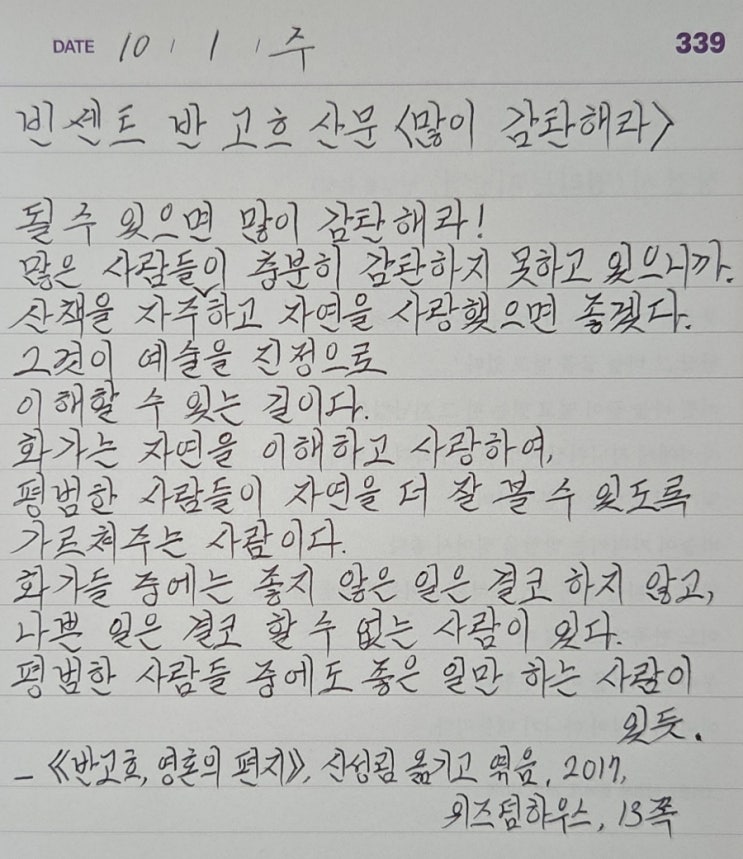 DATE 10 / 1 / 주 339
빈센트 반 고흐 산문 <많이 감탄해라>
될 수 있으면 많이 감탄해라!
많은 사람들이 충분히 감탄하지 못하고 있으니까.
산책을 자주∨하고 자연을 사랑했으면 좋겠다.
그것이 예술을 진정으로
이해할 수 있는 길이다.
화가는 자연을 이해하고 사랑하여,
평범한 사람들이 자연을 더 잘 볼 수 있도록
가르쳐주는 사람이다.
화가들 중에는 좋지 않은 일은 결코 하지 않고,
나쁜 일은 결코 할 수 없는 사람이 있다.
평범한 사람들 중에도 좋은 일만 하는 사람이
있듯.
- 《반 고흐, 영혼의 편지》, 신성림 옮기고 엮음, 2017,
위즈덤하우스, 13쪽